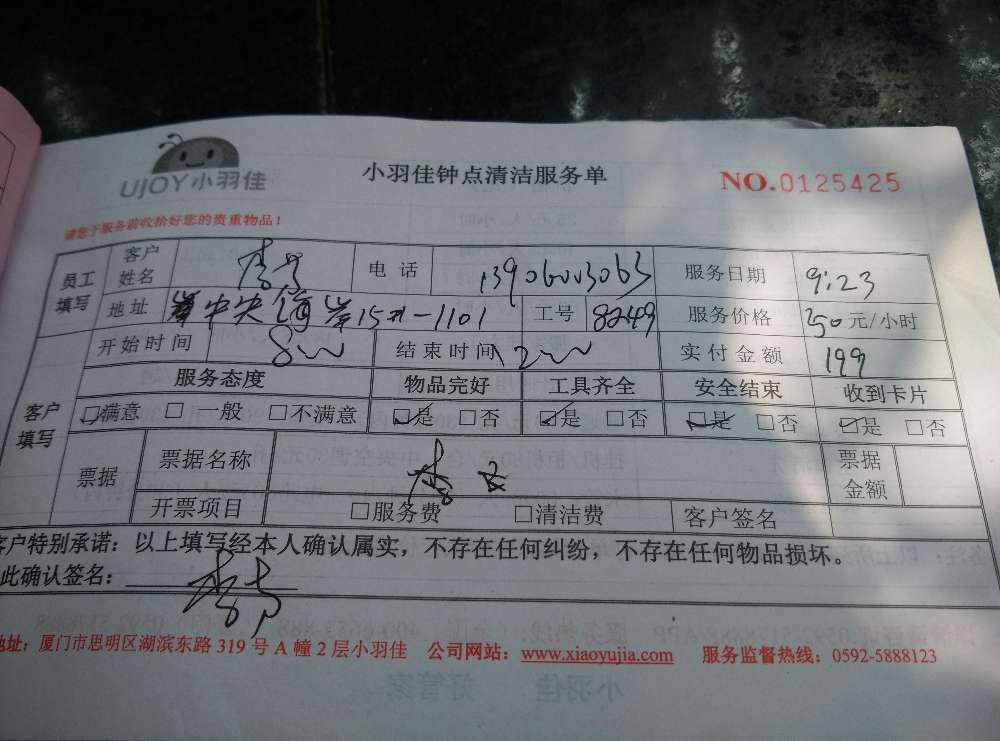 UJOY小羽佳
小羽佳钟点清洁服务单
NO.0125425
请您于服务前收拾好您的贵重物品！
员工填写 客户姓名 李 电话 13906003063 服务日期 9:23
地址 中央 岸15#-1101 工号 8249 服务价格 250元/小时
开始时间 800 结束时间 1200 实付金额 199
客户填写 服务态度 物品完好 工具齐全 安全结束 收到卡片
☑满意 □一般 □不满意 ☑是 □否 ☑是 □否 ☑是 □否 ☑是 □否
票据 票据名称 票据金额
开票项目 □服务费 □清洁费 客户签名
客户特别承诺：以上填写经本人确认属实，不存在任何纠纷，不存在任何物品损坏。
此确认签名： 李
地址：厦门市思明区湖滨东路 319 号 A 幢 2 层小羽佳 公司网站：www.xiaoyujia.com 服务监督热线：0592-5888123